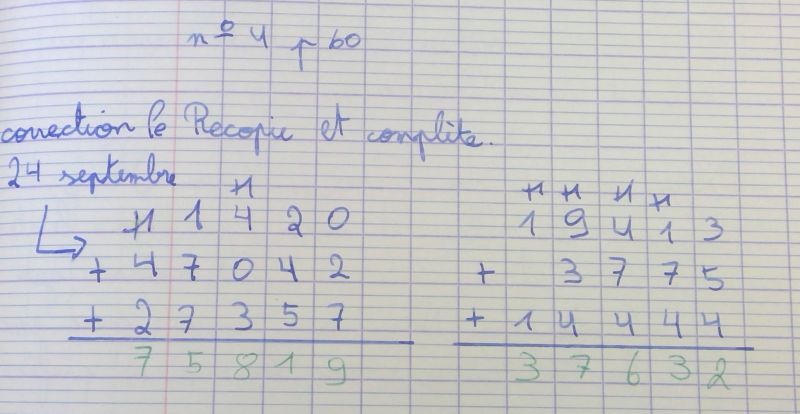 nº 4 p 60
correction le Recopie et complète.
24 septembre
+1
+1 1 4 2 0
+ 4 7 0 4 2
+ 2 7 3 5 7
7 5 8 1 9
+1 +1 +1 +1
1 9 4 1 3
+ 3 7 7 5
+ 1 4 4 4 4
3 7 6 3 2